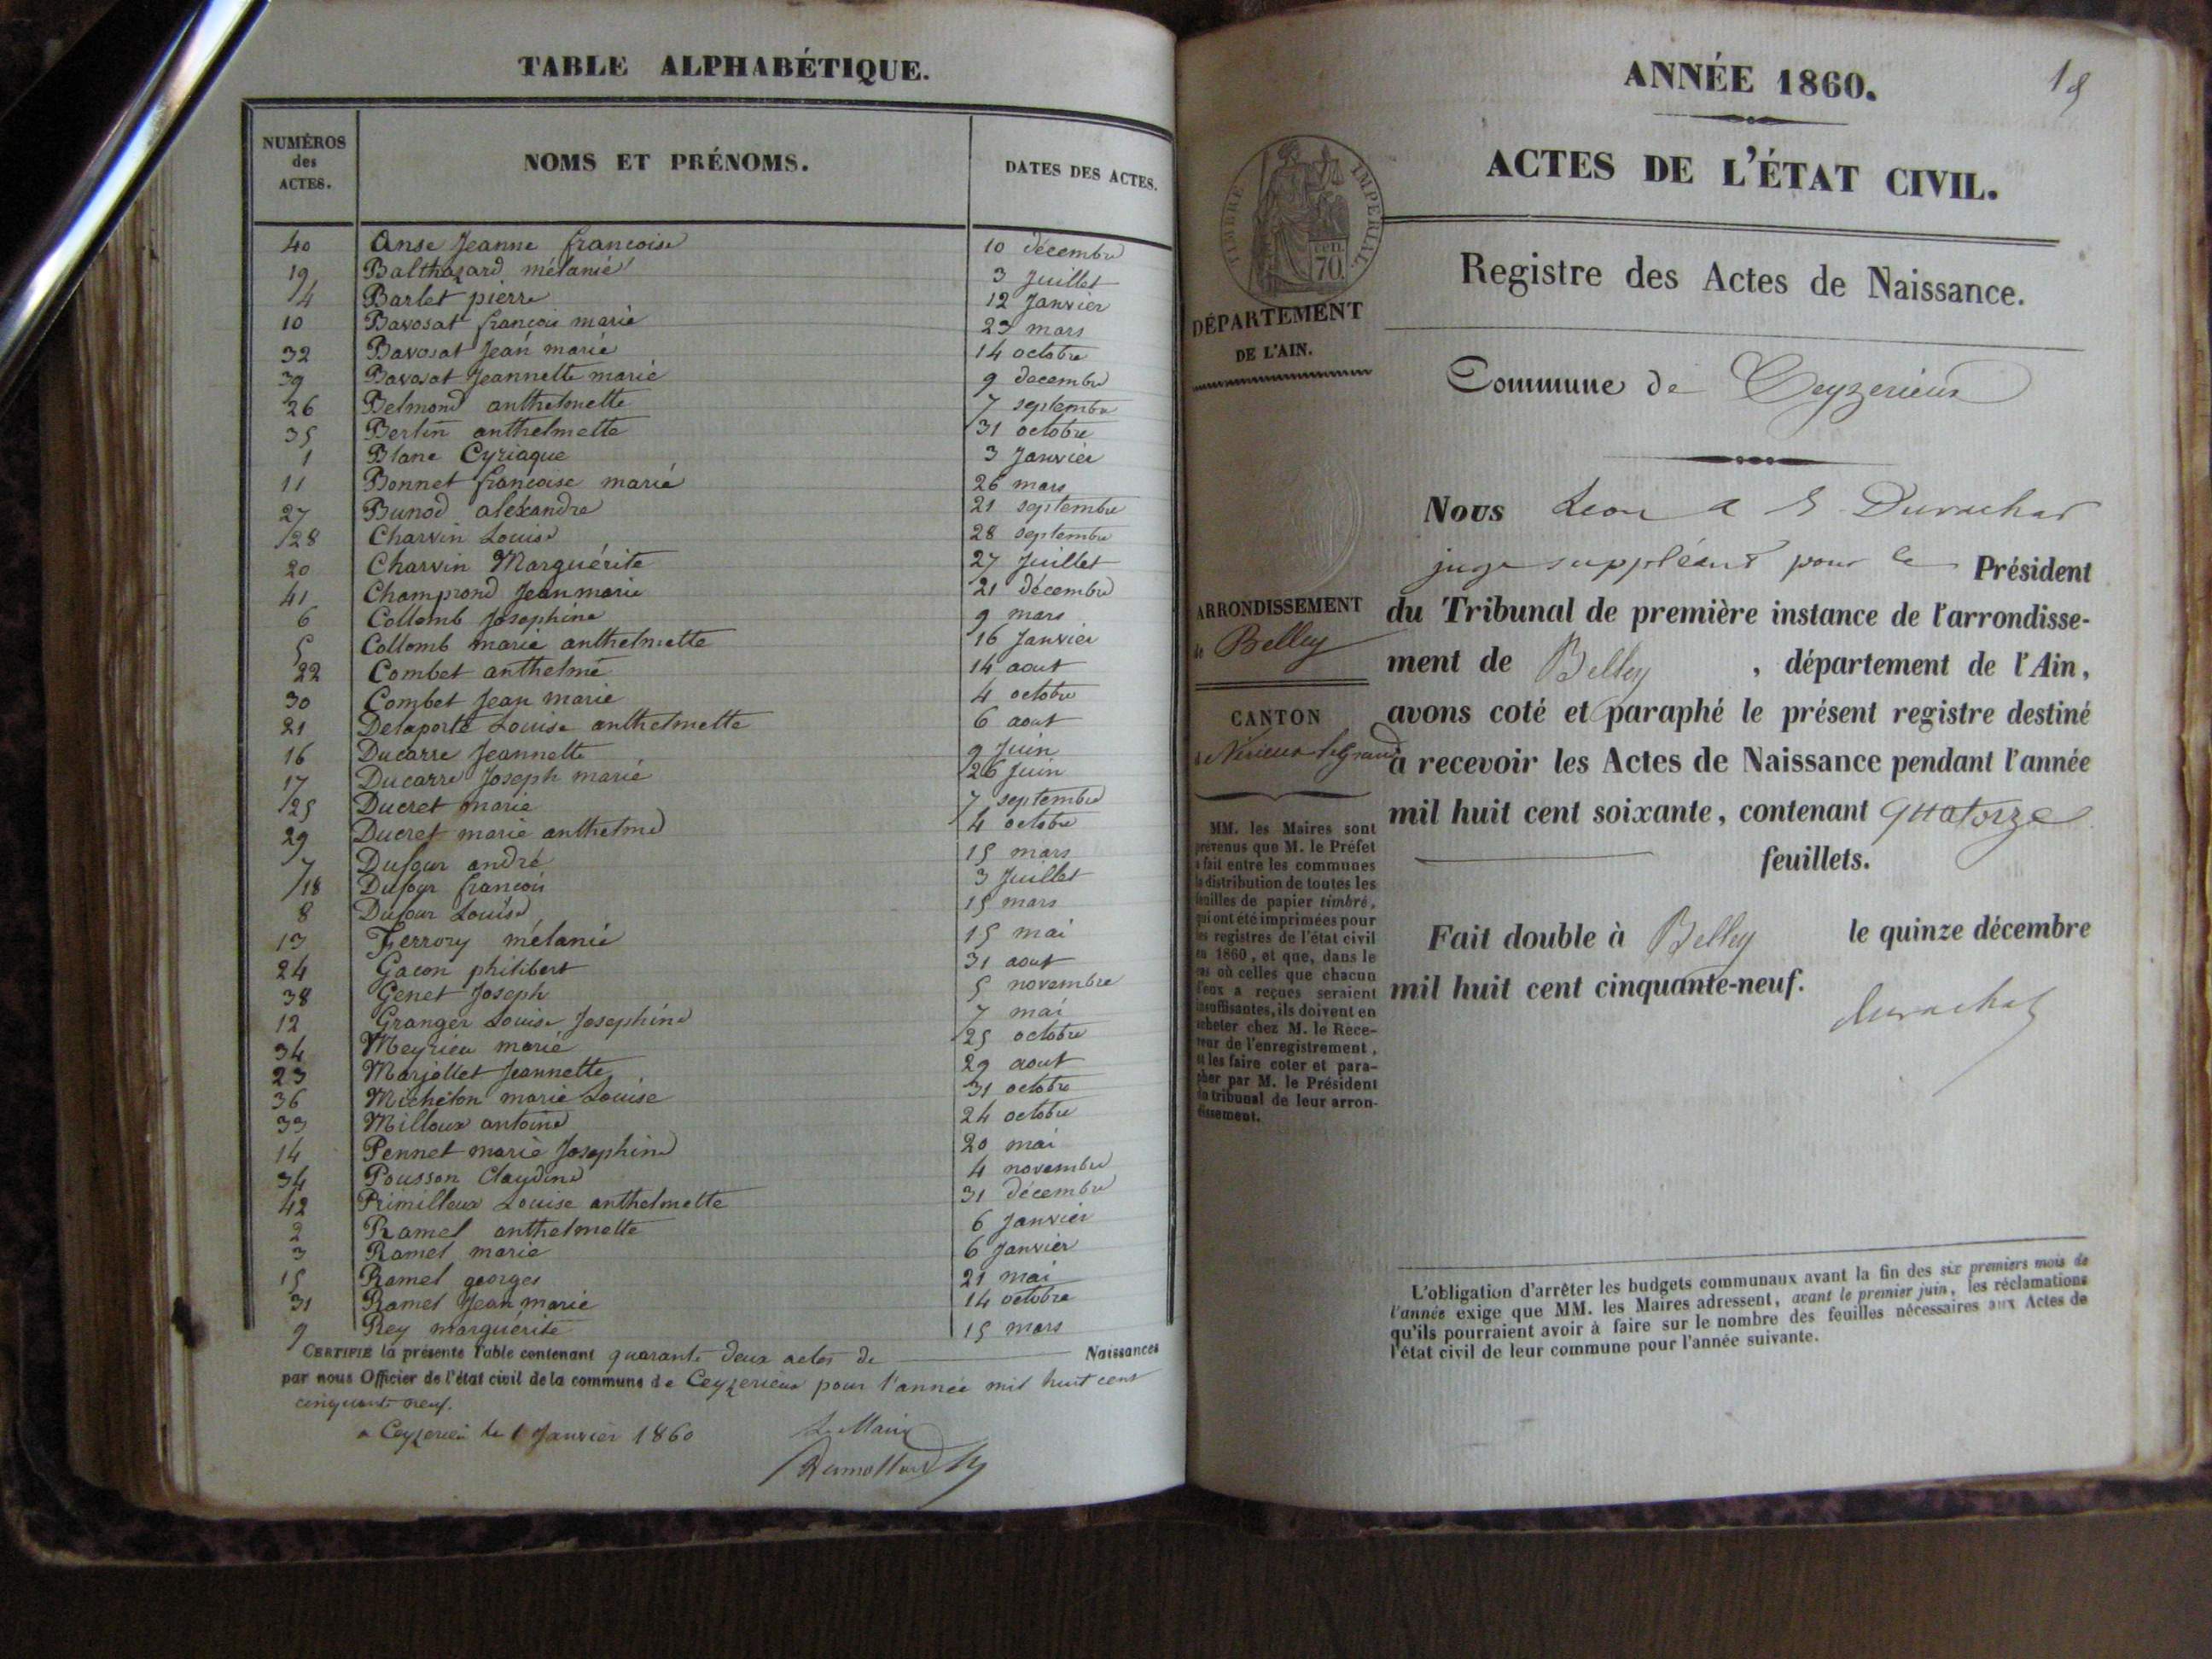 TABLE ALPHABÉTIQUE.
NUMÉROS des ACTES.
NOMS ET PRÉNOMS.
DATES DES ACTES.
40 Anse Jeanne francoise 10 décembre
19 Balthazard mélanie 3 Juillet
4 Barlet pierre 12 Janvier
10 Bavosat francois marie 23 mars
32 Bavosat Jean marie 14 octobre
39 Bavosat Jeannette marie 9 decembre
26 Belmond anthelmette 7 septembre
35 Berlin anthelmette 31 octobre
1 Blanc Cyriaque 3 Janvier
11 Bonnet francoise marie 26 mars
27 Bunod aléxandre 21 septembre
28 Charvin Louise 28 septembre
20 Charvin Marguérite 27 Juillet
41 Champrond Jean marie 21 décembre
6 Collomb Josephine 9 mars
5 Collomb marie anthelmette 16 Janvier
22 Combet anthelme 14 aout
30 Combet Jean marie 4 octobre
21 Delaporte Louise anthelmette 6 aout
16 Ducarre Jeannette 9 Juin
17 Ducarre Joseph marie 26 Juin
25 Ducret marie 7 septembre
29 Ducret marie anthelme 4 octobre
7 Dufour andré 15 mars
18 Dufour francois 3 Juillet
8 Dufour Louise 15 mars
13 Ferrory mélanie 15 mai
24 Gacon philibert 31 aout
38 Genet Joseph 5 novembre
12 Granger Louise Josephine 7 mai
34 Meyrieu marie 25 octobre
23 Marjollet Jeannette 29 aout
36 Michelon marie Louise 31 octobre
33 Milloux antoine 24 octobre
14 Pennet marie Josephine 20 mai
34 Pousson Claudine 4 novembre
42 Primilleux Louise anthelmette 31 décembre
2 Ramel anthelmette 6 Janvier
3 Ramel marie 6 Janvier
15 Ramel georges 21 mai
31 Ramel Jean marie 14 octobre
9 Rey marguérite 15 mars
CERTIFIÉ la présente Table contenant quarante deux actes de Naissances
par nous Officier de l'état civil de la commune de Ceyzerieux pour l'année mil huit cent
cinquante neuf.
a Ceyzerieu le 1 Janvier 1860
Le Maire
ANNÉE 1860.
ACTES DE L'ÉTAT CIVIL.
TIMBRE IMPERIAL
cen. 70
Registre des Actes de Naissance.
DÉPARTEMENT
DE L'AIN.
Commune de Ceyzerieux
Nous Leon Durachat
juge suppléant pour le Président
du Tribunal de première instance de l'arrondisse-
ment de Belley, département de l'Ain,
avons coté et paraphé le présent registre destiné
à recevoir les Actes de Naissance pendant l'année
mil huit cent soixante, contenant quatorze
feuillets.
Fait double à Belley le quinze décembre
mil huit cent cinquante-neuf.
Durachat
ARRONDISSEMENT
de Belley
CANTON
de Virieux le grand
MM. les Maires sont
prévenus que M. le Préfet
a fait entre les communes
la distribution de toutes les
feuilles de papier timbré,
qui ont été imprimées pour
les registres de l'état civil
en 1860, et que, dans le
cas où celles que chacun
d'eux a reçues seraient
insuffisantes, ils doivent en
acheter chez M. le Rece-
veur de l'enregistrement,
et les faire coter et para-
pher par M. le Président
du tribunal de leur arron-
dissement.
L'obligation d'arrêter les budgets communaux avant la fin des six premiers mois de
l'année exige que MM. les Maires adressent, avant le premier juin, les réclamations
qu'ils pourraient avoir à faire sur le nombre des feuilles nécessaires aux Actes de
l'état civil de leur commune pour l'année suivante.